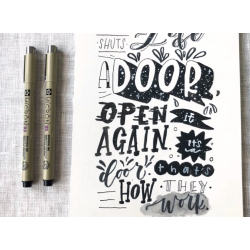 Life
SHUTS
A DOOR,
OPEN it
AGAIN. it's a
door thats
HOW THEY
work.